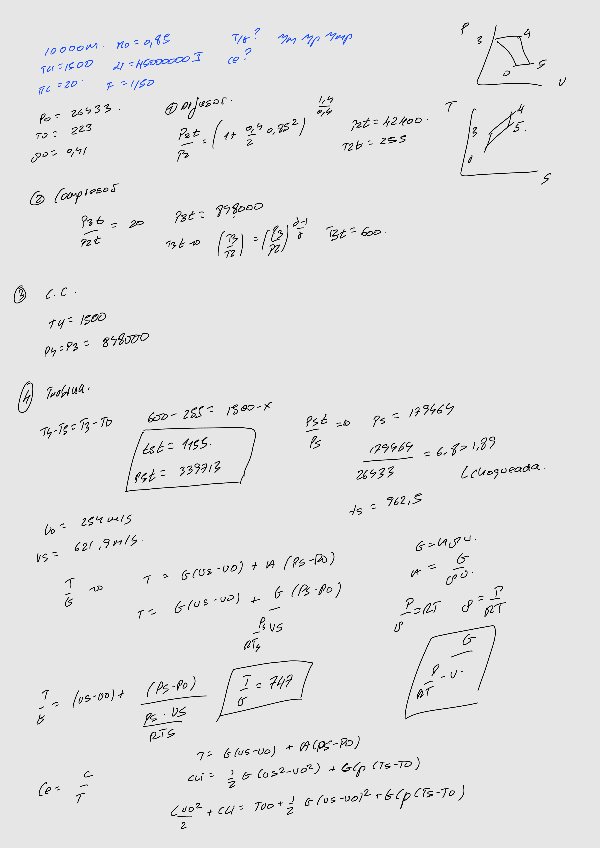 10000m. M0 = 0,85 T/G? ηm ηp ηmp
T4 = 1500 Li = 45000000 J Ce?
πc = 20. F = 1/50
P0 = 26433.
T0 = 223
ρ0 = 0,41
① Difusor.
P2t/P2 = (1 + 0,4/2 0,85²)^1,4/0,4 P2t = 42400.
T2t = 255
② Compresor
P3t/P2t = 20 P3t = 848000
T3t → (T3/T2) = (P3/P2)^γ-1/γ T3t = 600.
③ C.C.
T4 = 1500
P4 = P3 = 848000
④ Turbina.
T4-T5 = T3-T0 600 - 255 = 1500 - x
t5t = 1155.
P5t = 339713
P5t/P5 ⇒ P5 = 179464
179464/26433 = 6,8 > 1,89
Lchoqueada.
t5 = 962,5
U0 = 254 m/s
U5 = 621,9 m/s.
T/G → T = G(U5-U0) + A (P5-P0)
T = G(U5-U0) + G (P5-P0)
P5/RT5 U5
G = A ρ U.
A = G/ρU.
P/ρ = RT ρ = P/RT
G
P/RT · U.
T/G = (U5-U0) + (P5-P0)
P5·U5/RT5
T/G = 747
T = G(U5-U0) + A(P5-P0)
Ce = C/T
CLi = 1/2 G (U5²-U0²) + GCp (T5-T0)
CU0²/2 + CLi = TU0 + 1/2 G(U5-U0)² + GCp (T5-T0)
P
3
4
0
5
U
T
3
4
5.
0
S